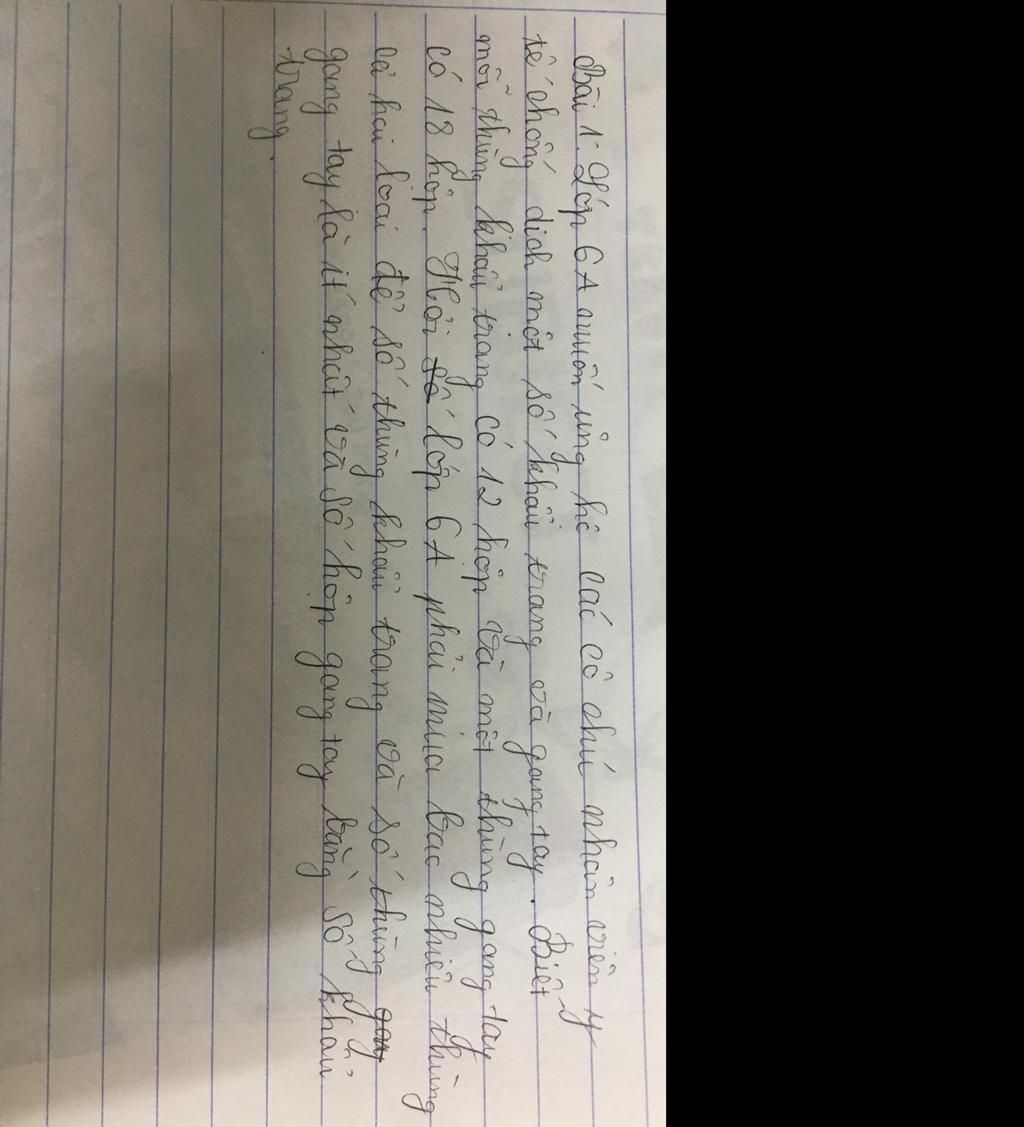 Bài 1: Lớp 6A muốn ủng hộ các cô chú nhân viên y
tế chống dịch một số khẩu trang và gang tay. Biết
mỗi thùng khẩu trang có 12 hộp và một thùng gang tay
có 18 hộp. Hỏi số lớp 6A phải mua bao nhiêu thùng
cả hai loại để số thùng khẩu trang và số thùng
gang tay là ít nhất và số hộp gang tay bằng số khẩu
trang.